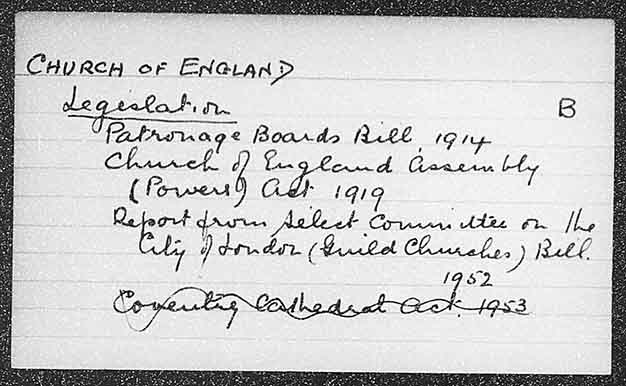 CHURCH OF ENGLAND
Legislation
B
Patronage Boards Bill, 1914
Church of England Assembly
(Powers) Act 1919
Report from Select Committee on the
City of London (Guild Churches) Bill.
1952
Coventry Cathedral Act. 1953